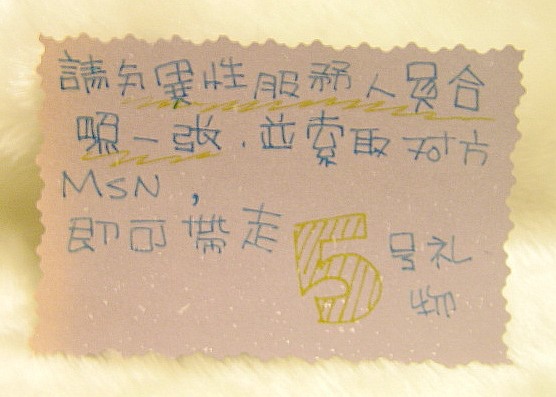 請与異性服務人員合
照一张，並索取对方
MSN，
即可帶走 5 号礼
物